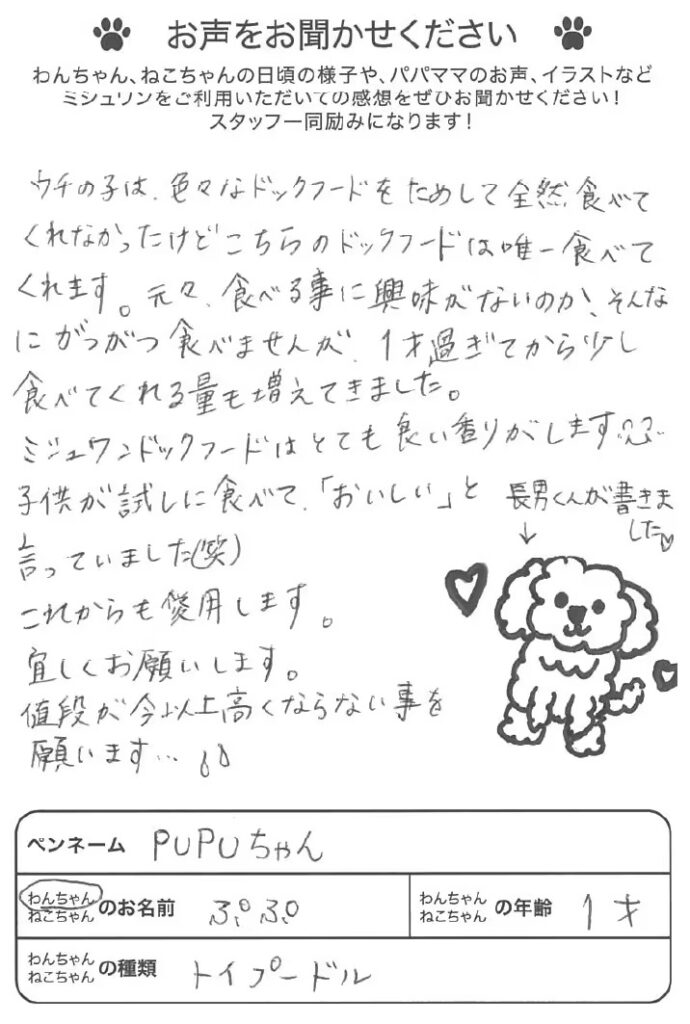 お声をお聞かせください
わんちゃん、ねこちゃんの日頃の様子や、パパママのお声、イラストなど
ミシュワンをご利用いただいての感想をぜひお聞かせください！
スタッフ一同励みになります！
ウチの子は、色々なドックフードをためして全然食べて
くれなかったけどこちらのドックフードは唯一食べて
くれます。元々、食べる事に興味がないのか、そんな
にがつがつ食べませんが、1才過ぎてから少し
食べてくれる量も増えてきました。
ミシュワンドックフードはとても良い香りがします
子供が試しに食べて、「おいしい」と
言っていました(笑)
長男くんが書きま
した♡
これからも愛用します。
宜しくお願いします。
値段が今以上高くならない事を
願います…
ペンネーム PUPUちゃん
わんちゃん
ねこちゃん のお名前 ぷぷ
わんちゃん
ねこちゃん の年齢 1才
わんちゃん
ねこちゃん の種類 トイプードル